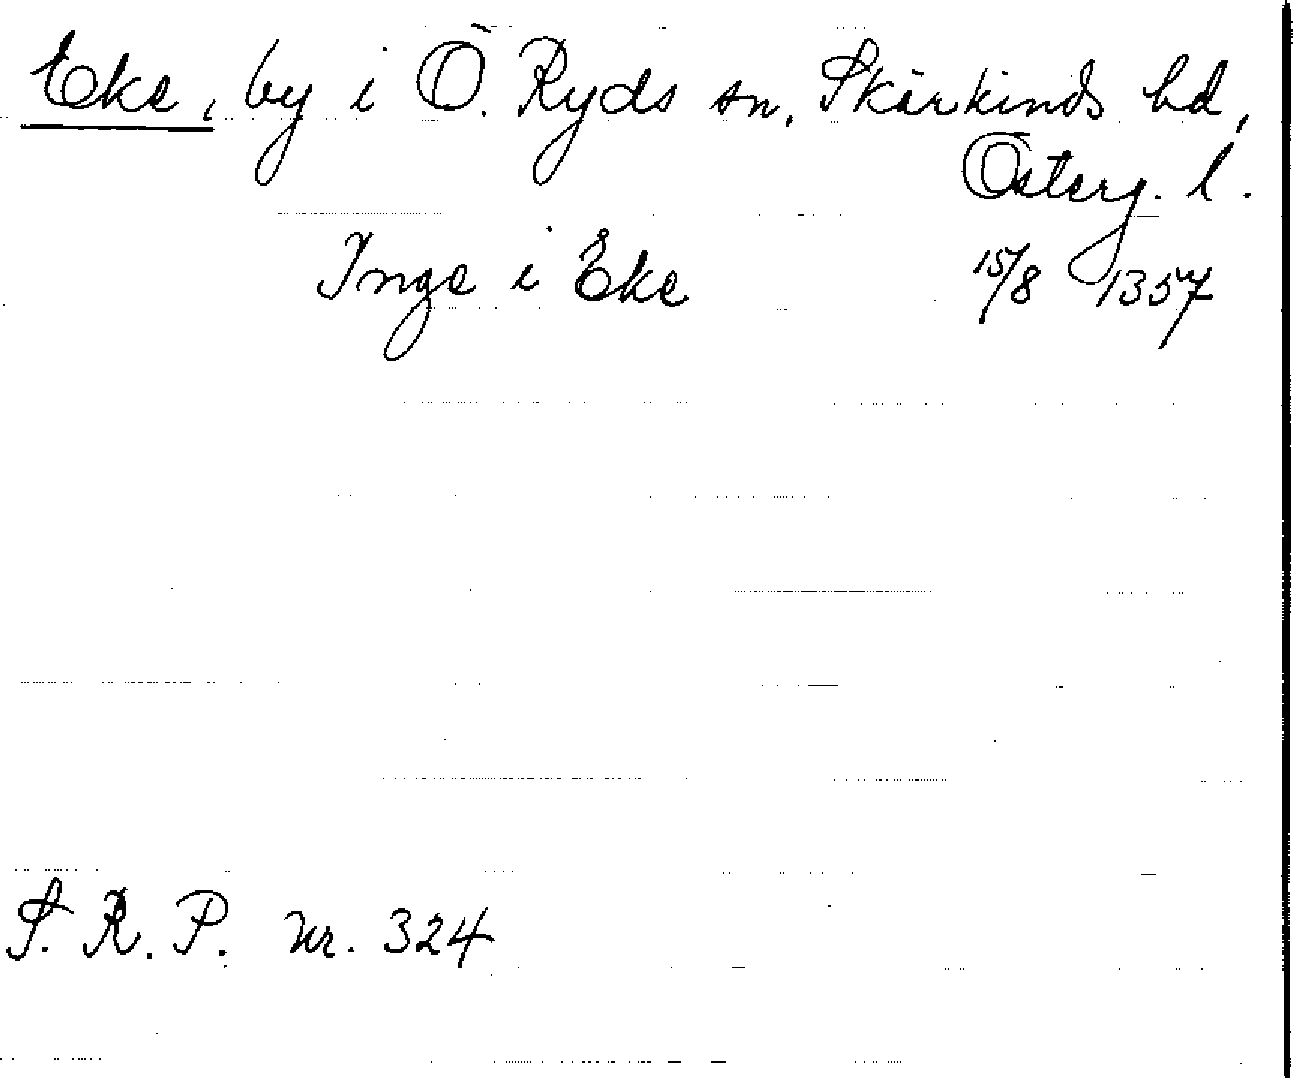 Eke, by i Ö. Ryds sn, Skärkinds hd,
Österg. l.
Inge i Eke 15/8 1357
S. R. P. nr. 324